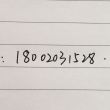 : 18002031528.